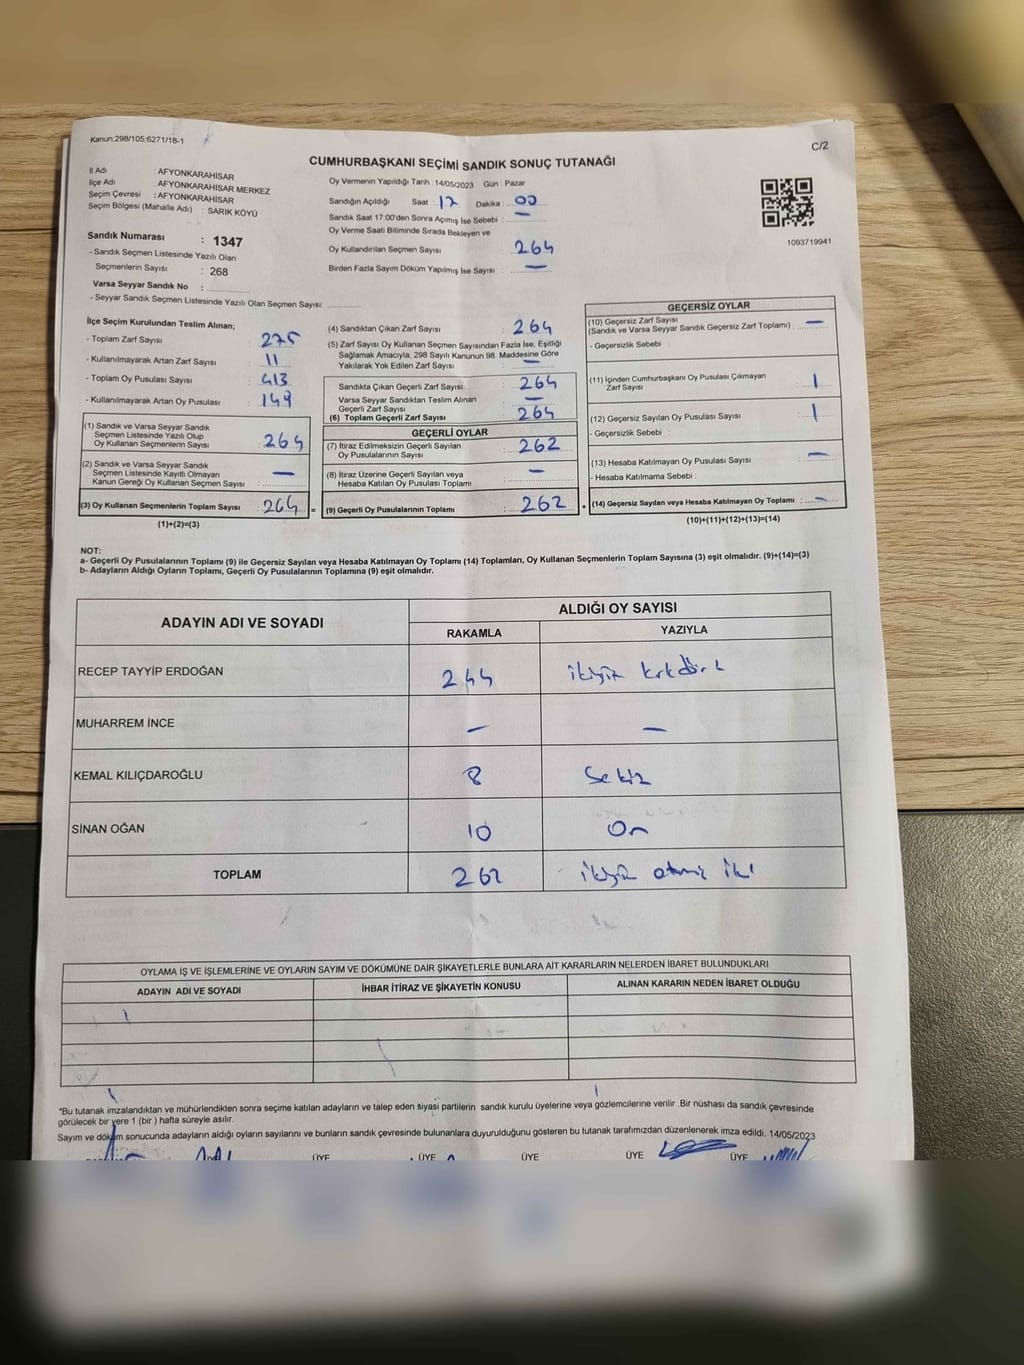 Kanun;298/105;6271/18-1
C/2
CUMHURBAŞKANI SEÇİMİ SANDIK SONUÇ TUTANAĞI
İl Adı : AFYONKARAHİSAR
İlçe Adı : AFYONKARAHİSAR MERKEZ
Seçim Çevresi : AFYONKARAHİSAR
Seçim Bölgesi (Mahalle Adı) : SARIK KÖYÜ
Sandık Numarası : 1347
- Sandık Seçmen Listesinde Yazılı Olan
Seçmenlerin Sayısı : 268
Varsa Seyyar Sandık No :
- Seyyar Sandık Seçmen Listesinde Yazılı Olan Seçmen Sayısı:
Oy Vermenin Yapıldığı Tarih : 14/05/2023 Gün : Pazar
Sandığın Açıldığı Saat : 17 Dakika : 00
Sandık Saat 17:00'den Sonra Açımış İse Sebebi : —
Oy Verme Saati Bitiminde Sırada Bekleyen ve
Oy Kullandırılan Seçmen Sayısı : 264
Birden Fazla Sayım Döküm Yapılmış İse Sayısı : —
1093719941
İlçe Seçim Kurulundan Teslim Alınan;
- Toplam Zarf Sayısı : 275
- Kullanılmayarak Artan Zarf Sayısı : 11
- Toplam Oy Pusulası Sayısı : 413
- Kullanılmayarak Artan Oy Pusulası : 149
(1) Sandık ve Varsa Seyyar Sandık
Seçmen Listesinde Yazılı Olup
Oy Kullanan Seçmenlerin Sayısı : 264
(2) Sandık ve Varsa Seyyar Sandık
Seçmen Listesinde Kayıtlı Olmayan
Kanun Gereği Oy Kullanan Seçmen Sayısı : —
(3) Oy Kullanan Seçmenlerin Toplam Sayısı : 264 =
(1)+(2)=(3)
(4) Sandıktan Çıkan Zarf Sayısı : 264
(5) Zarf Sayısı Oy Kullanan Seçmen Sayısından Fazla İse, Eşitliği
Sağlamak Amacıyla, 298 Sayılı Kanunun 98. Maddesine Göre
Yakılarak Yok Edilen Zarf Sayısı : —
Sandıkta Çıkan Geçerli Zarf Sayısı : 264
Varsa Seyyar Sandıktan Teslim Alınan
Geçerli Zarf Sayısı : —
(6) Toplam Geçerli Zarf Sayısı : 264
GEÇERLİ OYLAR
(7) İtiraz Edilmeksizin Geçerli Sayılan
Oy Pusulalarının Sayısı : 262
(8) İtiraz Üzerine Geçerli Sayılan veya
Hesaba Katılan Oy Pusulası Toplamı : —
(9) Geçerli Oy Pusulalarının Toplamı : 262 +
GEÇERSİZ OYLAR
(10) Geçersiz Zarf Sayısı
(Sandık ve Varsa Seyyar Sandık Geçersiz Zarf Toplamı) : —
- Geçersizlik Sebebi :
(11) İçinden Cumhurbaşkanı Oy Pusulası Çıkmayan
Zarf Sayısı : 1
(12) Geçersiz Sayılan Oy Pusulası Sayısı : 1
- Geçersizlik Sebebi :
(13) Hesaba Katılmayan Oy Pusulası Sayısı : —
- Hesaba Katılmama Sebebi :
(14) Geçersiz Sayılan veya Hesaba Katılmayan Oy Toplamı : —
(10)+(11)+(12)+(13)=(14)
NOT:
a- Geçerli Oy Pusulalarının Toplamı (9) ile Geçersiz Sayılan veya Hesaba Katılmayan Oy Toplamı (14) Toplamları, Oy Kullanan Seçmenlerin Toplam Sayısına (3) eşit olmalıdır. (9)+(14)=(3)
b- Adayların Aldığı Oyların Toplamı, Geçerli Oy Pusulalarının Toplamına (9) eşit olmalıdır.
ADAYIN ADI VE SOYADI
ALDIĞI OY SAYISI
RAKAMLA YAZIYLA
RECEP TAYYİP ERDOĞAN 244 ikiyüz kırkdört
MUHARREM İNCE — —
KEMAL KILIÇDAROĞLU 8 Sekiz
SİNAN OĞAN 10 On
TOPLAM 262 ikiyüz atmış iki
OYLAMA İŞ VE İŞLEMLERİNE VE OYLARIN SAYIM VE DÖKÜMÜNE DAİR ŞİKAYETLERLE BUNLARA AİT KARARLARIN NELERDEN İBARET BULUNDUKLARI
ADAYIN ADI VE SOYADI İHBAR İTİRAZ VE ŞİKAYETİN KONUSU ALINAN KARARIN NEDEN İBARET OLDUĞU
*Bu tutanak imzalandıktan ve mühürlendikten sonra seçime katılan adayların ve talep eden siyasi partilerin sandık kurulu üyelerine veya gözlemcilerine verilir. Bir nüshası da sandık çevresinde
görülecek bir yere 1 (bir) hafta süreyle asılır.
Sayım ve döküm sonucunda adayların aldığı oyların sayılarını ve bunların sandık çevresinde bulunanlara duyurulduğunu gösteren bu tutanak tarafımızdan düzenlenerek imza edildi. 14/05/2023
ÜYE ÜYE ÜYE ÜYE ÜYE